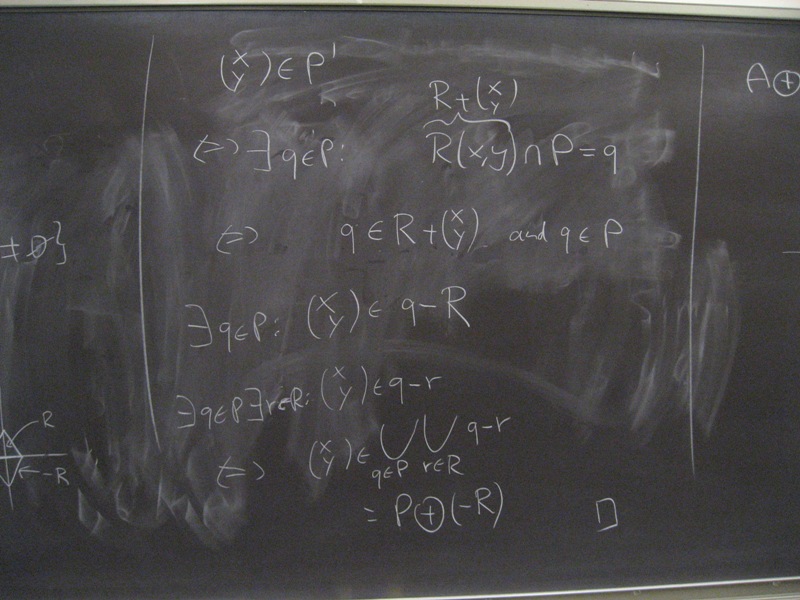 ≠ ∅}
R
-R
(x y) ∈ P'
R + (x y)
⇔ ∃ q∈P: R(x,y) ∩ P = q
⇔ q ∈ R + (x y) and q ∈ P
∃ q∈P: (x y) ∈ q - R
∃ q∈P ∃ r∈R: (x y) ∈ q - r
⇔ (x y) ∈ ⋃ q∈P ⋃ r∈R q - r
= P ⊕ (-R) □
A ⊕